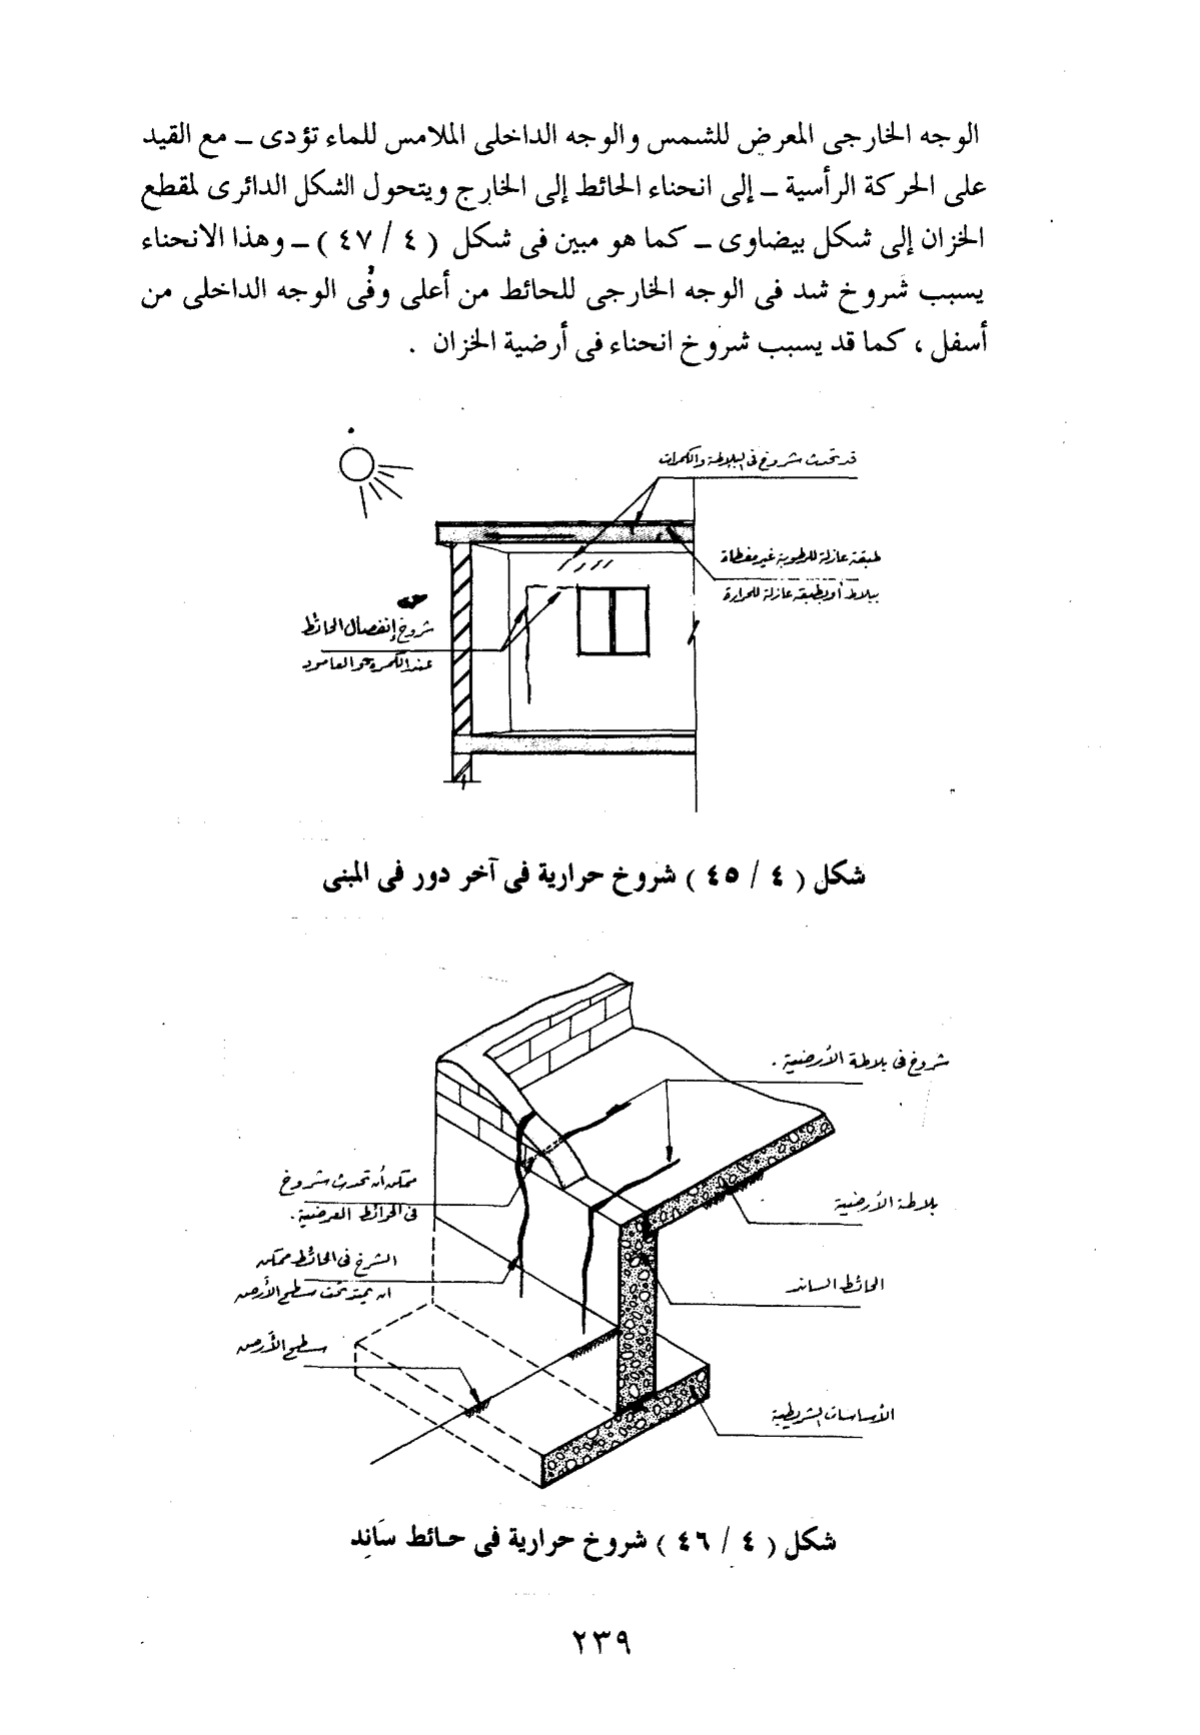 الوجه الخارجى المعرض للشمس والوجه الداخلى الملامس للماء تؤدى ــ مع القيد
على الحركة الرأسية ــ إلى انحناء الحائط إلى الخارج ويتحول الشكل الدائرى لمقطع
الخزان إلى شكل بيضاوى ــ كما هو مبين فى شكل ( ٤ / ٤٧ ) ــ وهذا الانحناء
يسبب شروخ شد فى الوجه الخارجى للحائط من أعلى وفى الوجه الداخلى من
أسفل ، كما قد يسبب شروخ انحناء فى أرضية الخزان .
قد تحدث شروخ فى البلاطة والكمرات
طبقة عازلة للرطوبة غير مغطاة
ببلاط أو بطبقة عازلة للحرارة
شروخ إنفصال الحائط
عند الكمرة والعامود
شكل ( ٤ / ٤٥ ) شروخ حرارية فى آخر دور فى المبنى
شروخ فى بلاطة الأرضية .
ممكن أن تحدث شروخ
فى الحوائط العرضية .
بلاطة الأرضية
الشرخ فى الحائط ممكن
ان يمتد تحت سطح الأرض
الحائط الساند
سطح الأرض
الأساسات الشريطية
شكل ( ٤ / ٤٦ ) شروخ حرارية فى حائط سَانِد
٢٣٩